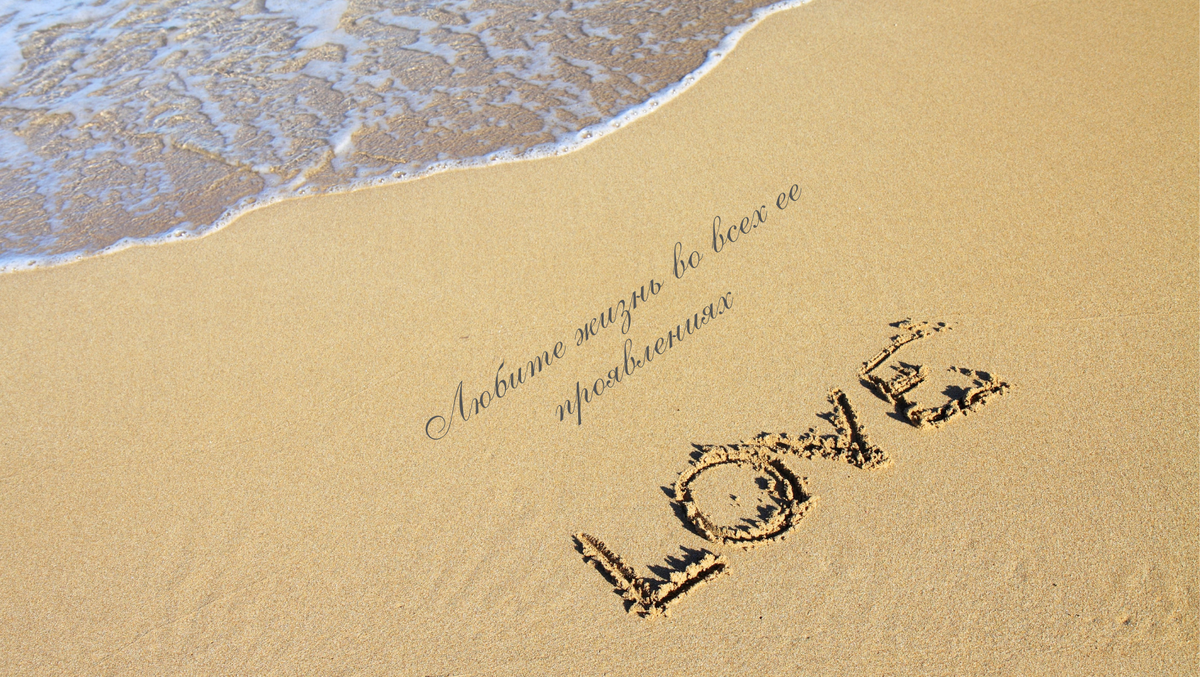 Любите жизнь во всех ее
проявлениях
LOVE